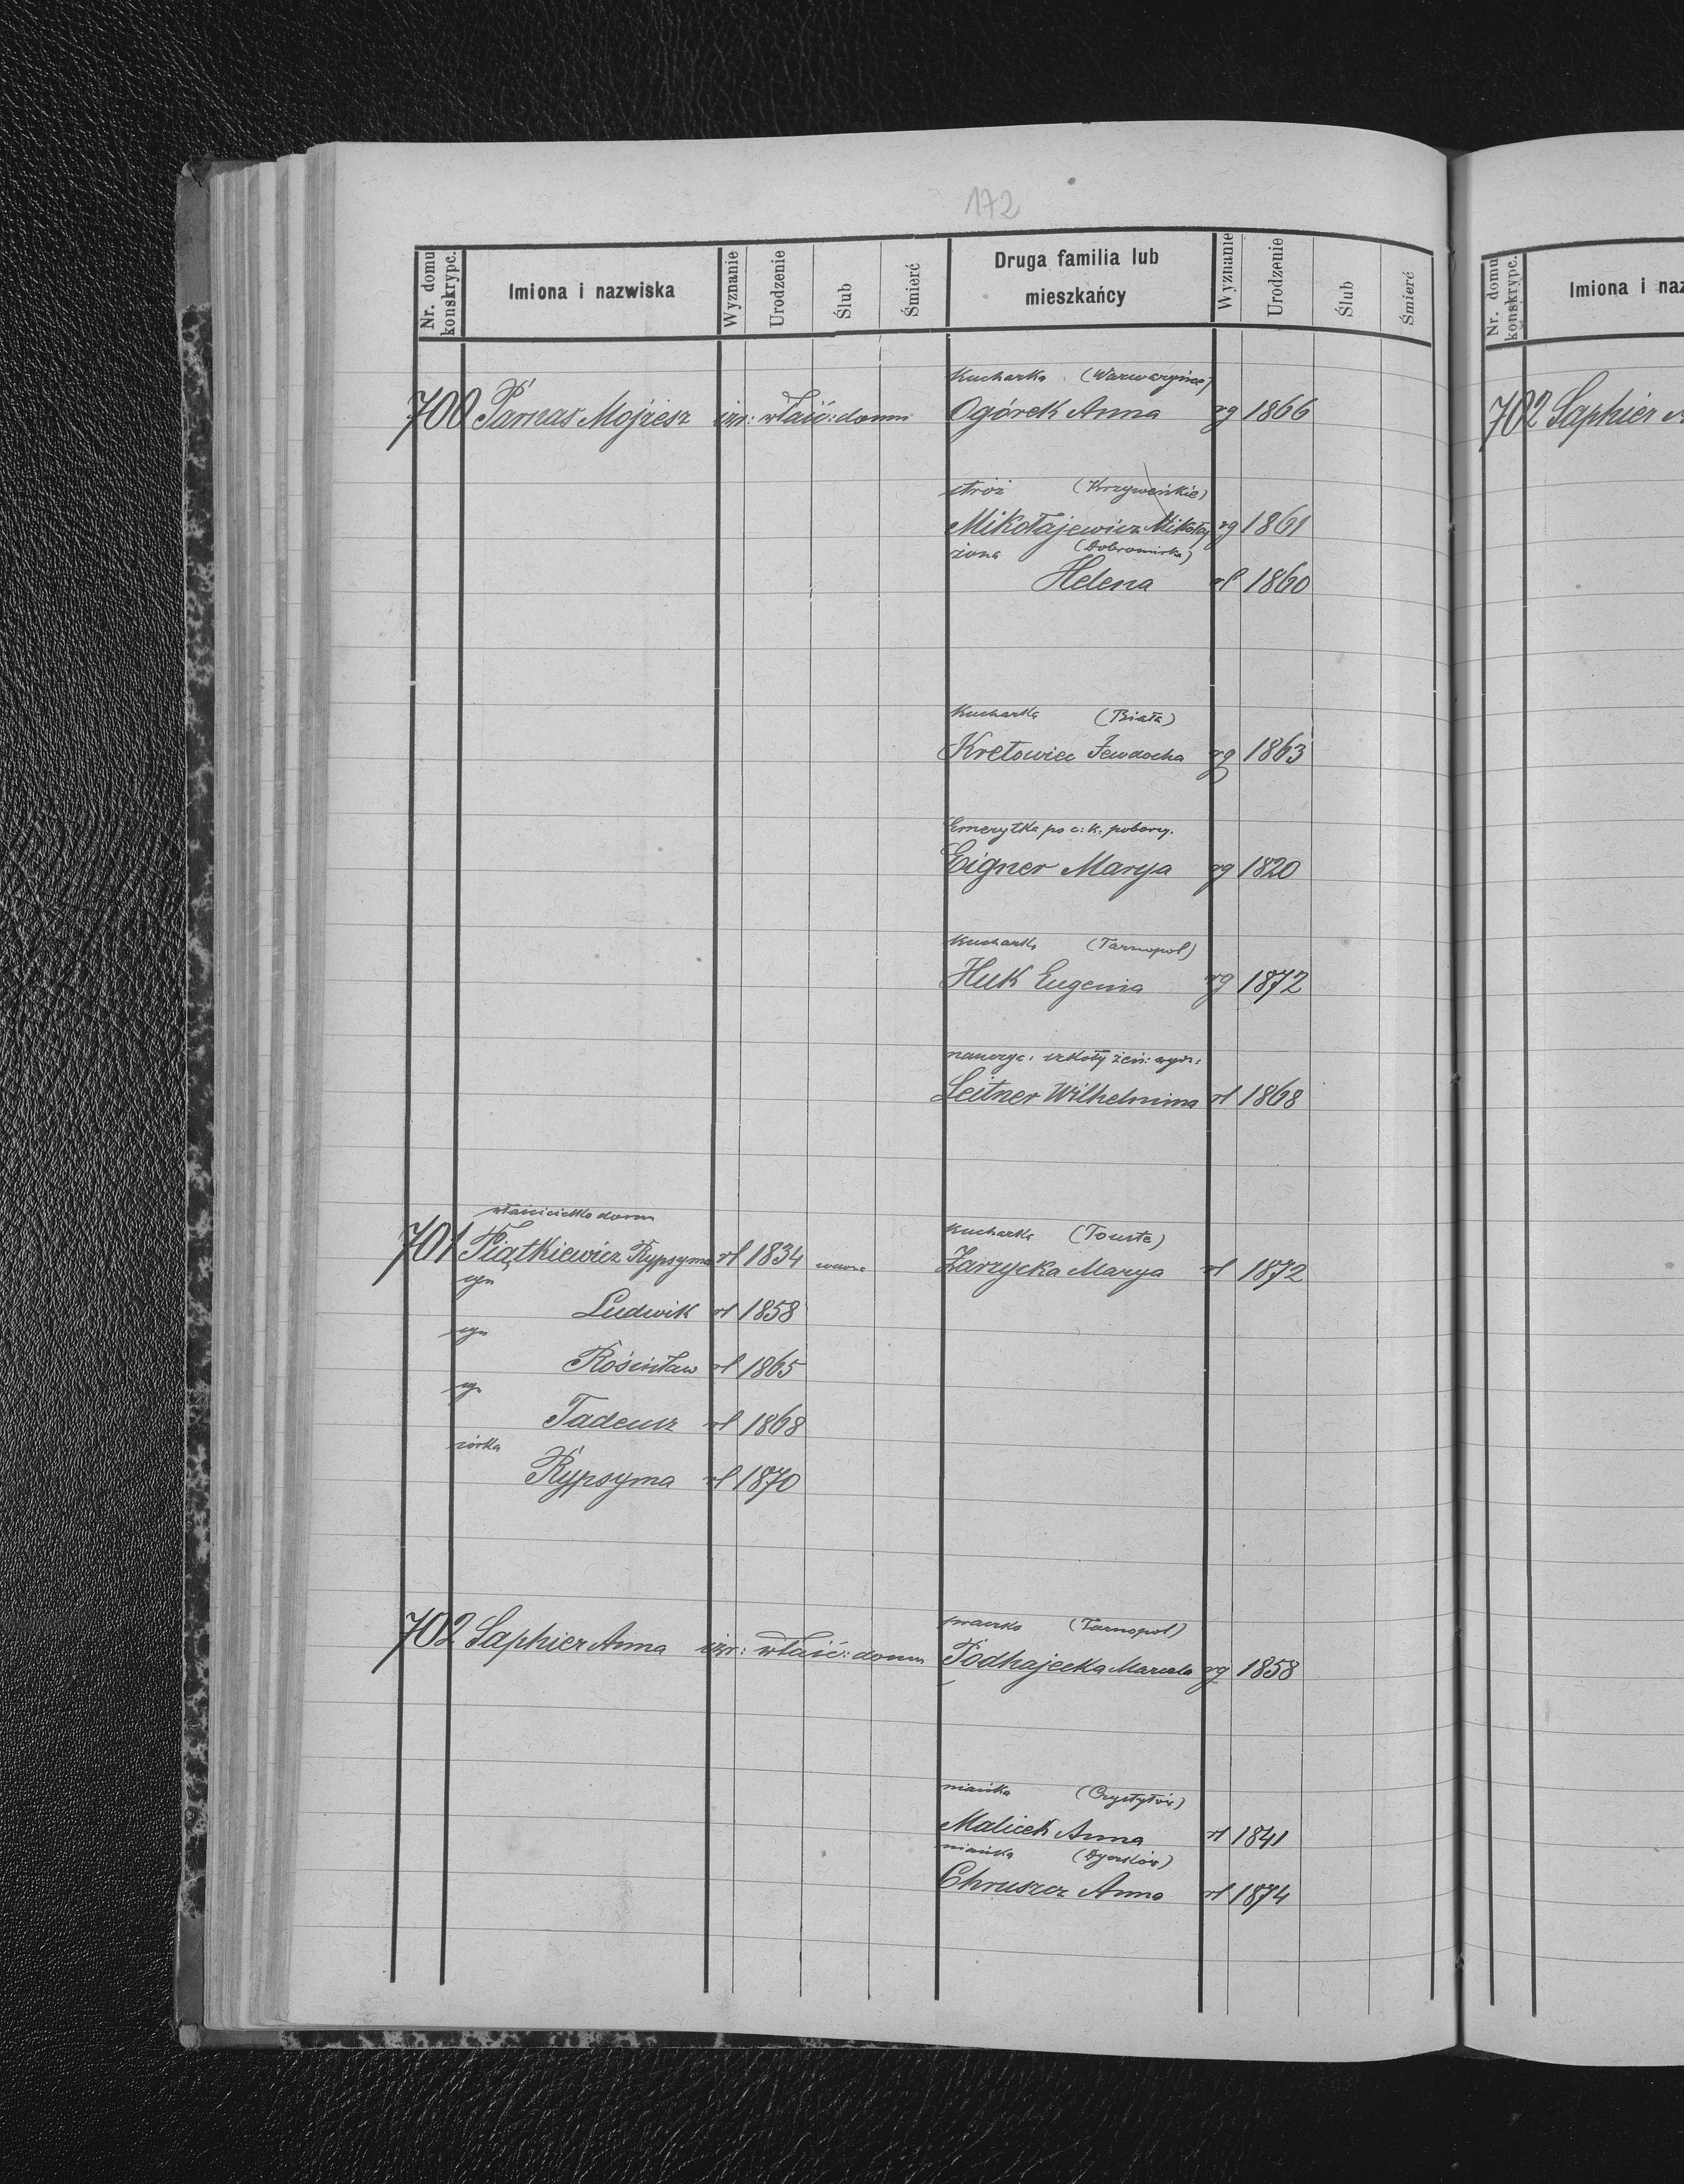 172
Nr. domu konskrypc.
Imiona i nazwiska
Wyznanie
Urodzenie
Ślub
Śmierć
Druga familia lub
mieszkańcy
Wyznanie
Urodzenie
Ślub
Śmierć
Kucharka (Warwaryńce)
700 Parnas Mojżesz izr: właśc: domu Ogórek Anna rg 1866
stróż (Krzyweńkie)
Mikołajewicz Mikołaj rg 1861
żona (Dobromirka)
Helena rł 1860
Kucharka (Biała)
Kretowiec Jewdocha rg 1863
Emerytka po c: k. poborcy.
Eigner Marya rg 1820
Kucharka (Tarnopol)
Huk Eugenia rg 1872
nauczyc: szkoły żeń: wydz:
Leitner Wilhelmina rł 1868
właścicielka domu
Kucharka (Touste)
701 Piątkiewicz Rypsyma rł 1834 wdowa Zarzycka Marya rł 1872
syn
Ludwik rł 1858
syn
Rościsław rł 1865
syn
Tadeusz rł 1868
córka
Rypsyma rł 1870
praczka (Tarnopol)
702 Saphier Anna izr: właśc: domu Podhajecka Marcela rg 1858
niańka (Czystyłów)
Malicek Anna rł 1841
niańka
Chruszcz Anna rł 1874
Nr. domu konskrypc.
Imiona i naz
702 Saphier